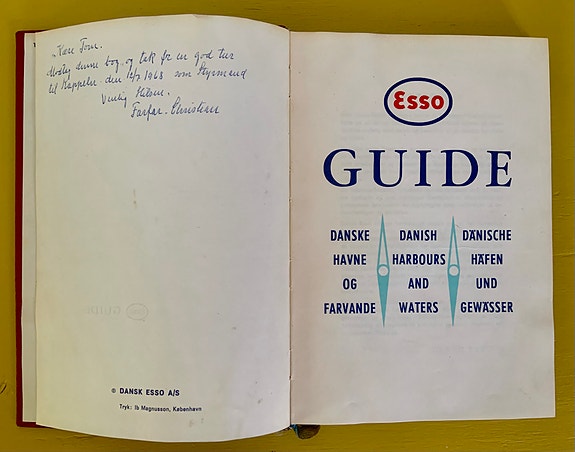 "Kære Tom.
Modtag denne bog og tak for en god tur
til Kappeln den 12/7 1968 som Styrmand
Venlig Hilsen.
Farfar. Christian
© DANSK ESSO A/S
Tryk: Ib Magnusson, København
Esso
GUIDE
DANSKE
HAVNE
OG
FARVANDE
DANISH
HARBOURS
AND
WATERS
DÄNISCHE
HÄFEN
UND
GEWÄSSER